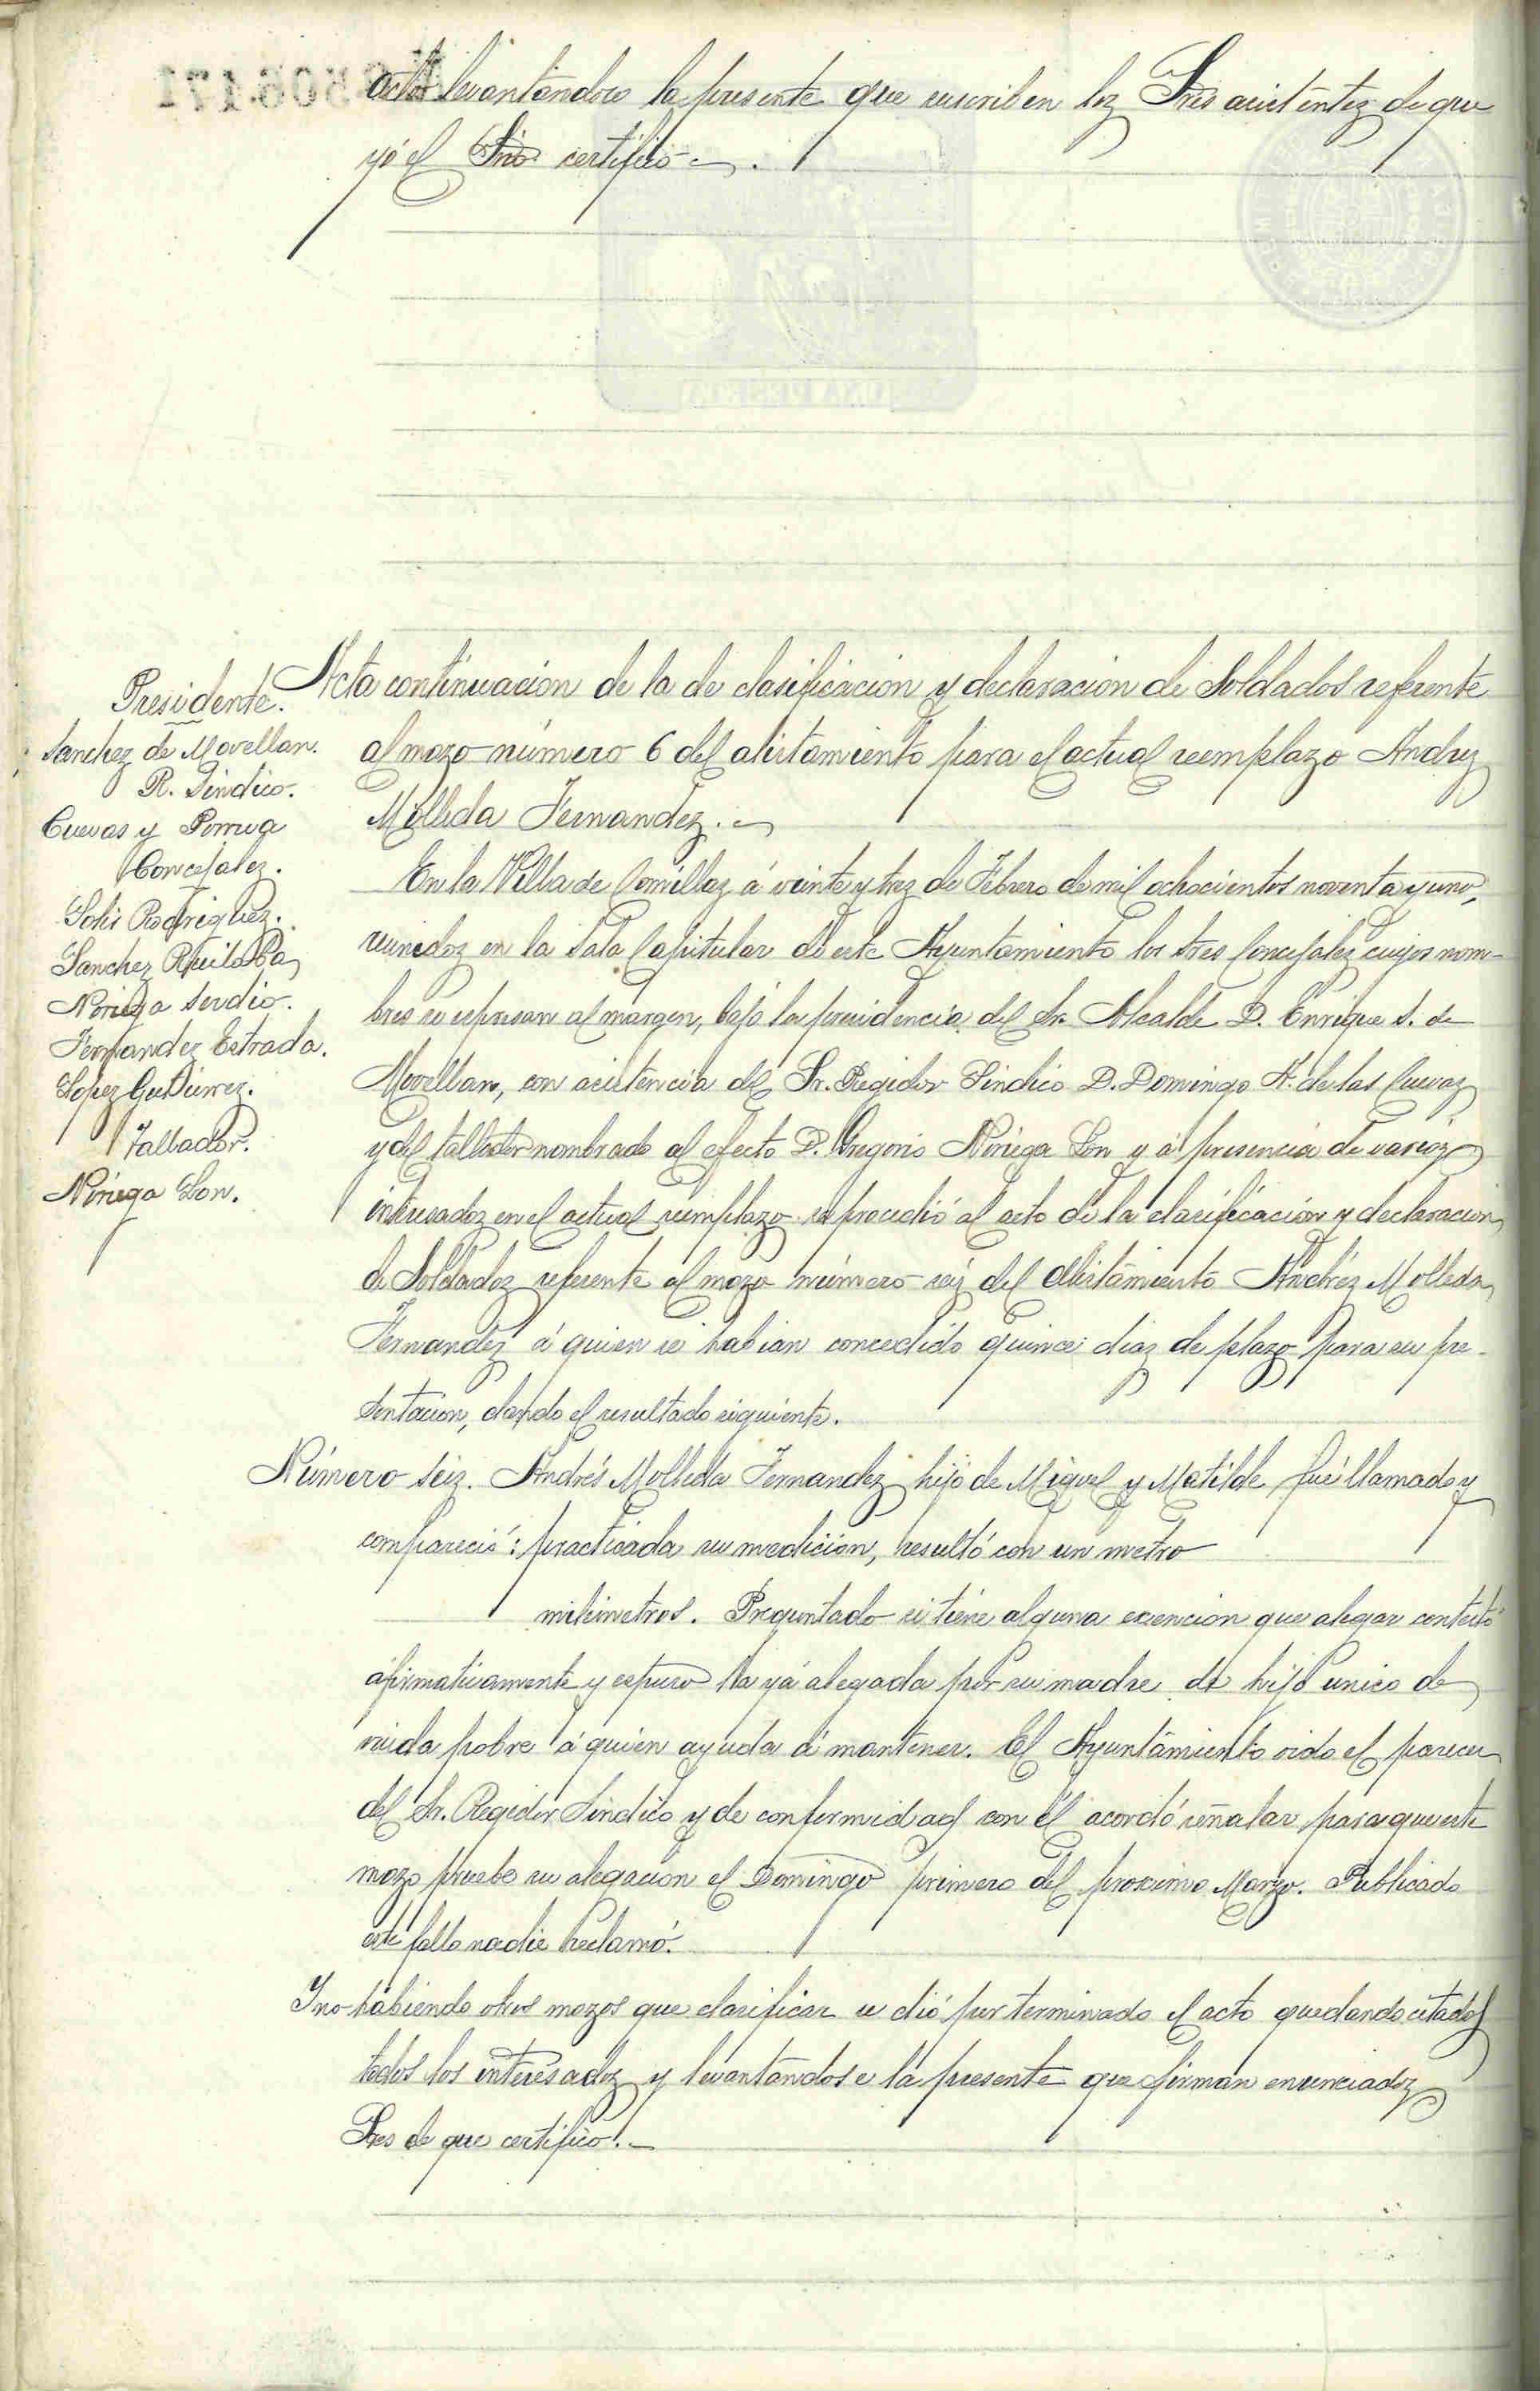 acto levantándose la presente que suscriben los Sres asistentes de que
yó el Srio certifico.
Presidente.
Sanchez de Movellan.
R. Sindico.
Cuevas y Porrua
Concejales.
Solis Rodriguez.
Sanchez
Noriega Serdio.
Fernandez Estrada.
Lopez Gutierrez.
Tallador.
Noriega Lon.
Acta continuacion de la de clasificacion y declaracion de Soldados referente
al mozo número 6 del alistamiento para el actual reemplazo Andres
Molleda Fernandez.
En la Villa de Comillas á veinte y tres de Febrero de mil ochocientos noventa y uno,
reunidos en la Sala Capitular de este Ayuntamiento los Sres Concejales cuyos nom-
bres se espresan al margen, bajo la presidencia del Sr. Alcalde D. Enrique S. de
Movellan, con asistencia del Sr. Regidor Sindico D. Domingo A. de las Cuevas
y del tallador nombrado al efecto D. Gregorio Noriega Lon y á presencia de varios
interesados en el actual reemplazo se procedió al acto de la clasificación y declaracion
de Soldados referente al mozo número seis del alistamiento Andrés Molleda
Fernandez á quien se habian concedido quince dias de plazo para su pre-
sentacion, dando el resultado siguiente.
Número seis. Andrés Molleda Fernandez hijo de Miguel y Matilde fué llamado y
compareció: practicada su medicion, resultó con un metro
milimetros. Preguntado si tiene alguna exencion que alegar contestó
afirmativamente y espuso la yá alegada por su madre de hijo unico de
viuda pobre á quien ayuda á mantener. El Ayuntamiento oido el parecer
del Sr. Regidor Sindico y de conformidad con él acordó señalar para que este
mozo pruebe su alegacion el Domingo primero del proximo Marzo. Publicado
este fallo nadie reclamó.
Y no habiendo otros mozos que clasificar se dió por terminado el acto quedando citados
todos los interesados y levantándose la presente que firman enunciados
Sres de que certifico.